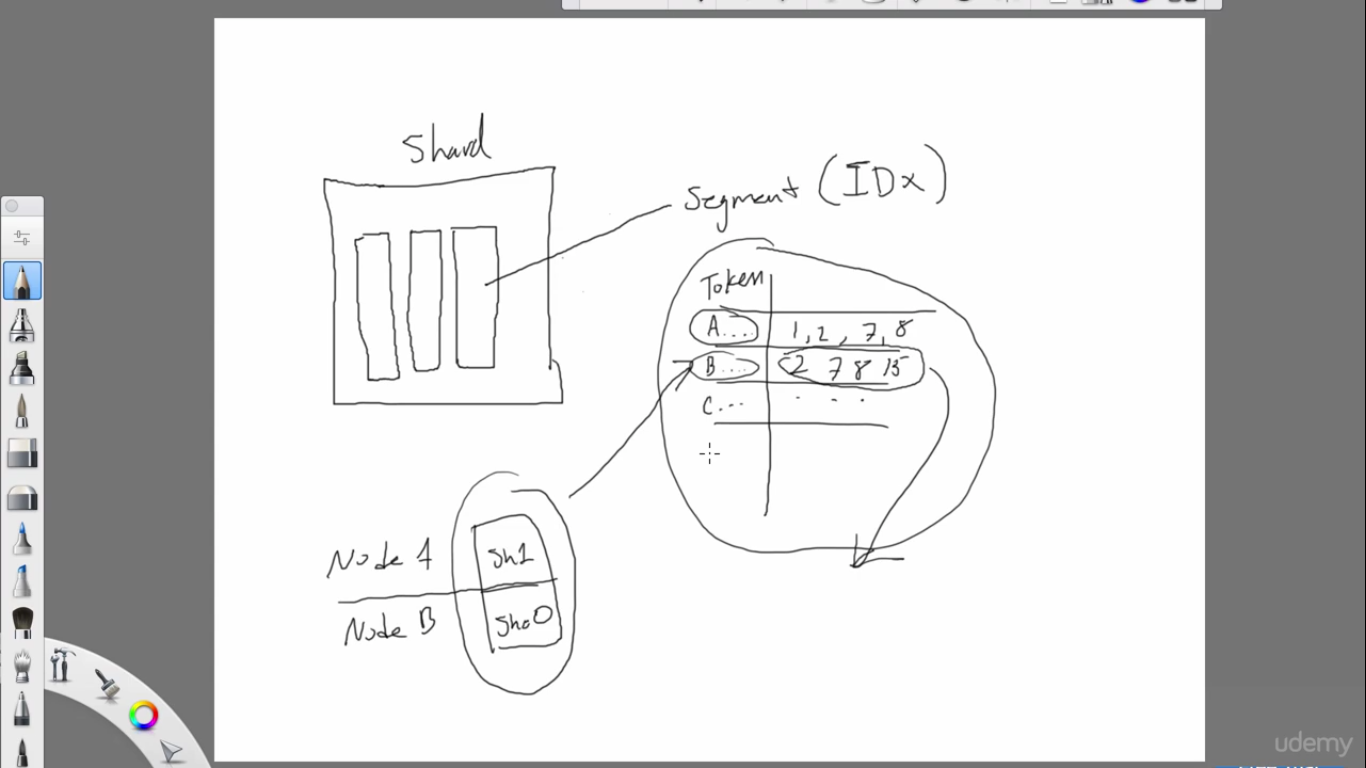 Shard
Segment (IDx)
Token
A.... 1, 2, 7, 8
B.... 2 7 8 15
C... . . .
Node A Sh1
Node B Sho0
udemy